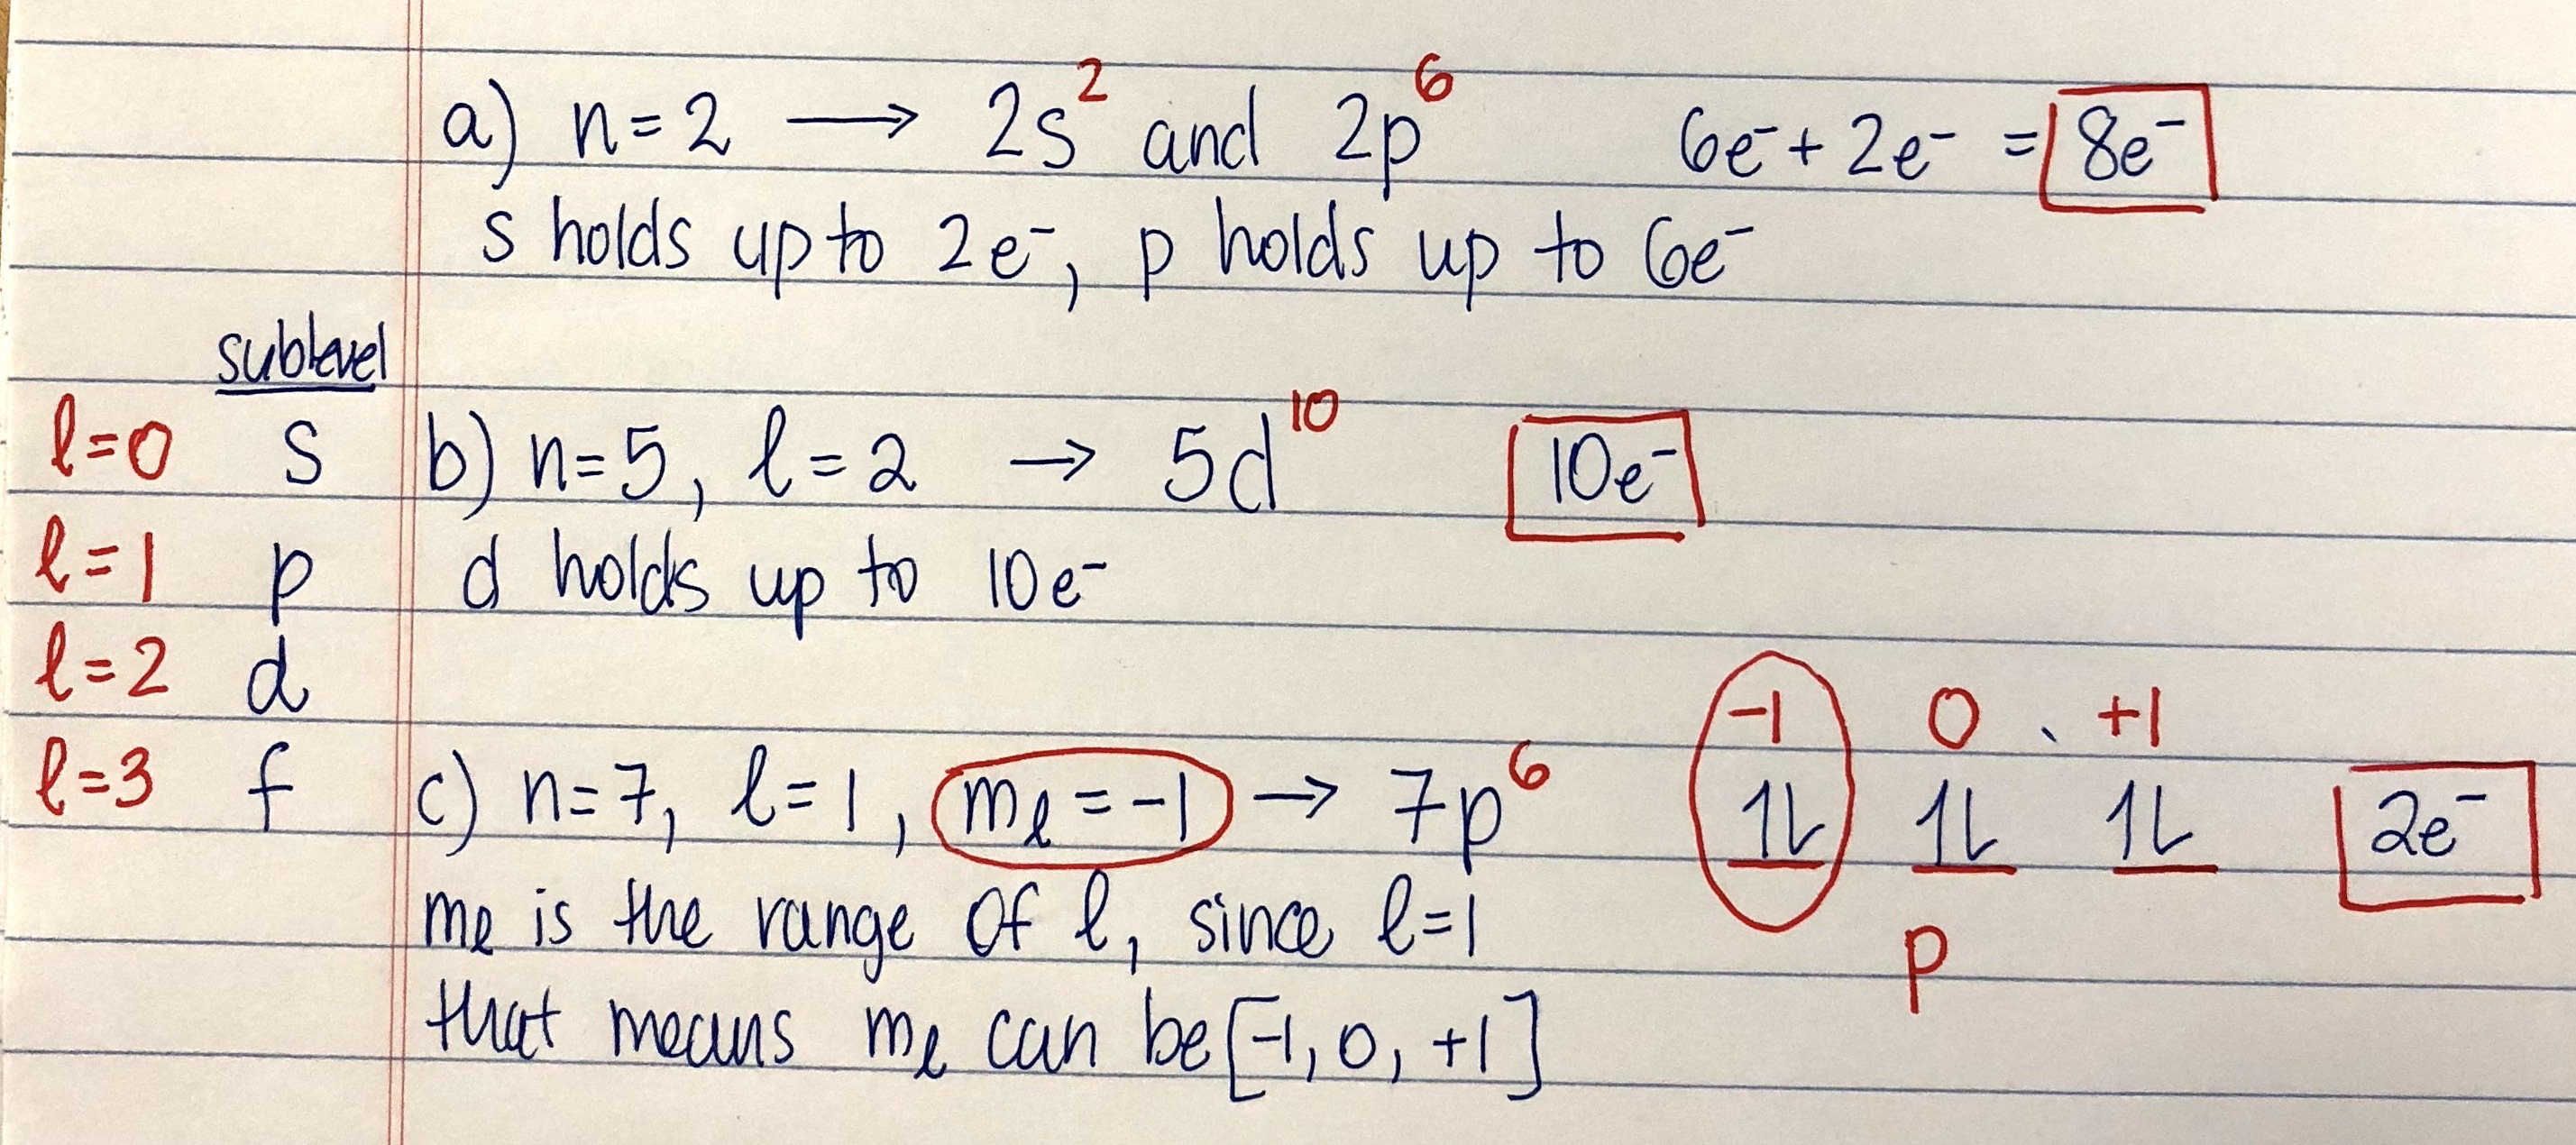 a) n=2 → 2s² and 2p⁶ 6e⁻ + 2e⁻ = 8e⁻
s holds up to 2e⁻, p holds up to 6e⁻
sublevel
l=0 s
l=1 p
l=2 d
l=3 f
b) n=5, l=2 → 5d¹⁰ 10e⁻
d holds up to 10e⁻
c) n=7, l=1, mₗ=-1 → 7p⁶
-1 0 +1
1L 1L 1L 2e⁻
p
mₗ is the range of l, since l=1
that means mₗ can be [-1, 0, +1]